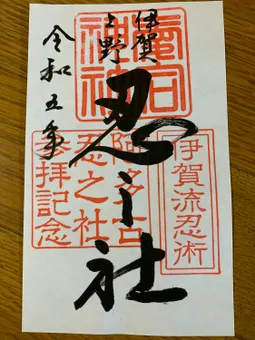 伊賀
上野
忍之社
令和五年
伊賀流忍術
忍之社
参拝記念